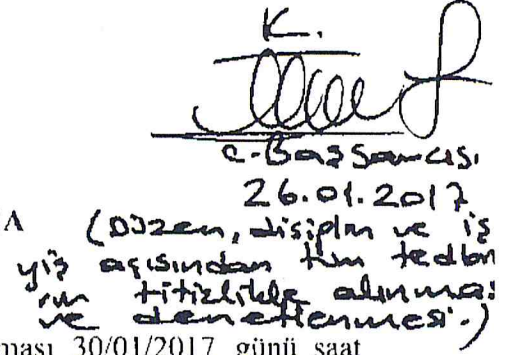 K.
C. Başsavcısı
26.01.2017
A (Düzen, disiplin ve iş
yiş açısından tüm tedbir
rın titizlikle alınması
ve denetlenmesi.)
ması 30/01/2017 günü saat